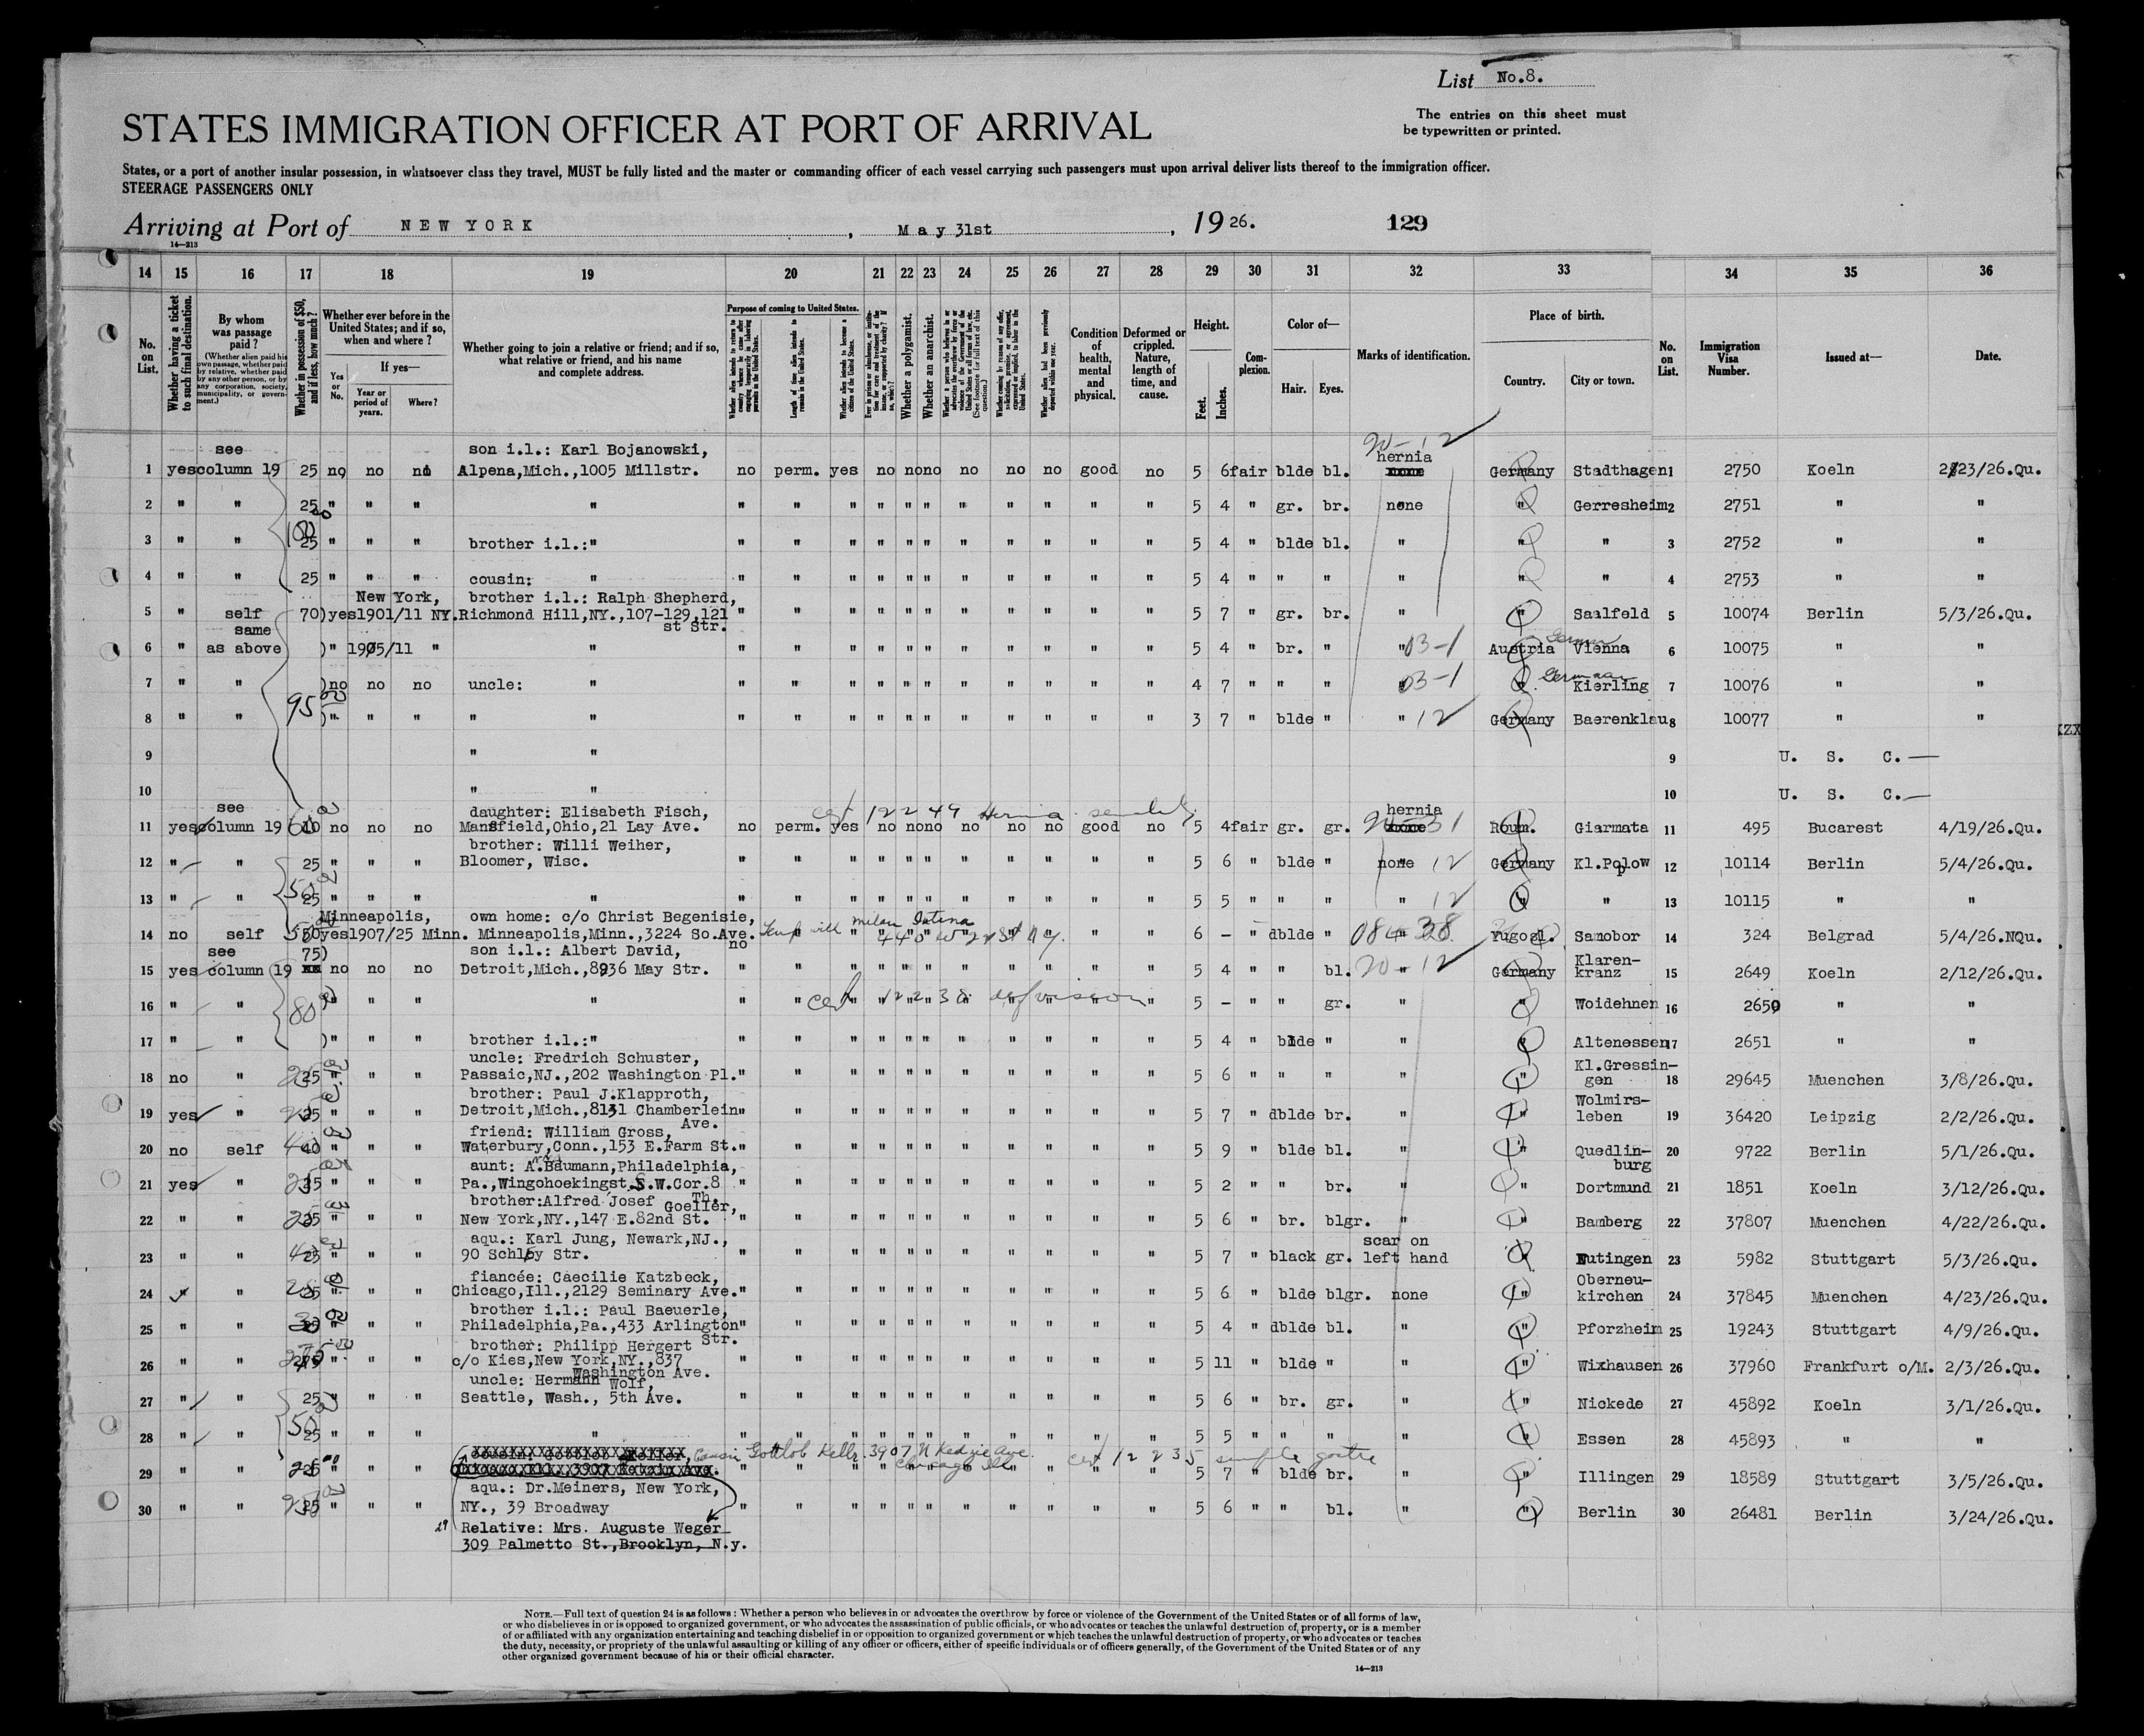 List No.8.
The entries on this sheet must
be typewritten or printed.
STATES IMMIGRATION OFFICER AT PORT OF ARRIVAL
States, or a port of another insular possession, in whatsoever class they travel, MUST be fully listed and the master or commanding officer of each vessel carrying such passengers must upon arrival deliver lists thereof to the immigration officer.
STEERAGE PASSENGERS ONLY
Arriving at Port of NEW YORK, May 31st, 1926. 129
14—213
14 15 16 17 18 19 20 21 22 23 24 25 26 27 28 29 30 31 32 33 34 35 36
No. on List.
Whether having a ticket to such final destination.
By whom was passage paid?
(Whether alien paid his own passage, whether paid by relative, whether paid by any other person, or by any corporation, society, municipality, or government.)
Whether in possession of $50, and if less, how much?
Whether ever before in the United States; and if so, when and where?
If yes—
Yes or No.
Year or period of years.
Where?
Whether going to join a relative or friend; and if so, what relative or friend, and his name and complete address.
Purpose of coming to United States.
Length of time alien intends to remain in the United States.
Whether alien intends to become a citizen of the United States.
Whether a polygamist.
Whether an anarchist.
Condition of health, mental and physical.
Deformed or crippled. Nature, length of time, and cause.
Height.
Feet.
Inches.
Complexion.
Color of—
Hair.
Eyes.
Marks of identification.
Place of birth.
Country.
City or town.
No. on List.
Immigration Visa Number.
Issued at—
Date.
see son i.l.: Karl Bojanowski, hernia
1 yes column 19 25 no no no Alpena,Mich.,1005 Millstr. no perm. yes no no no no no no good no 5 6 fair blde bl. Germany Stadthagen 1 2750 Koeln 2/23/26.Qu.
2 " " 25 " " " " " " " " " " " " " " " 5 4 " gr. br. none " Gerresheim 2 2751 " "
3 " " 25 " " " brother i.l.:" " " " " " " " " " " " 5 4 " blde bl. " " " 3 2752 " "
4 " " 25 " " " cousin: " " " " " " " " " " " " 5 4 " " " " " " 4 2753 " "
New York, brother i.l.: Ralph Shepherd,
5 " self 70) yes 1901/11 NY. Richmond Hill,NY.,107-129,121 " " " " " " " " " " " 5 7 " gr. br. " " Saalfeld 5 10074 Berlin 5/3/26.Qu.
same st Str.
6 " as above )" 1905/11 " " " " " " " " " " " " " 5 4 " br. " " 03-1 Austria Vienna German 6 10075 " "
7 " " )no no no uncle: " " " " " " " " " " " " 4 7 " " " " 03-1 " Kierling German 7 10076 " "
8 " " 95 )" " " " " " " " " " " " " " " " 3 7 " blde " " 12 Germany Baerenklau 8 10077 " "
9 " " 9 U. S. C.—
10 " " 10 U. S. C.—
see daughter: Elisabeth Fisch, cert 12249 Hernia hernia
11 yes column 19 no no no Mansfield,Ohio,21 Lay Ave. no perm. yes no no no no no no good no 5 4 fair gr. gr. Roum. Giarmata 11 495 Bucarest 4/19/26.Qu.
brother: Willi Weiher,
12 " " 25 " " " Bloomer, Wisc. " " " " " " " " " " " 5 6 " blde " none 12 Germany Kl.Polow 12 10114 Berlin 5/4/26.Qu.
13 " " 25 " " " " " " " " " " " " " " " 5 5 " " " " 12 " " 13 10115 " "
Minneapolis, own home: c/o Christ Begenisie,
14 no self 50 yes 1907/25 Minn. Minneapolis,Minn.,3224 So.Ave. no 6 – " dblde " 08 38 Yugosl. Samobor 14 324 Belgrad 5/4/26.NQu.
see 75) son i.l.: Albert David, Klaren-
15 yes column 19 no no no Detroit,Mich.,8936 May Str. " " " " " " " " " " " 5 4 " " bl. 20-12 Germany kranz 15 2649 Koeln 2/12/26.Qu.
16 " " 80 " " " " " " " " " " " " " " " 5 – " " gr. " " Woidehnen 16 2650 " "
17 " " )" " " brother i.l.:" " " " " " " " " " " " 5 4 " blde " " " Altenessen 17 2651 " "
uncle: Fredrich Schuster, Kl.Gressin-
18 no " 25 " " " Passaic,NJ.,202 Washington Pl. " " " " " " " " " " " 5 6 " " " " " gen 18 29645 Muenchen 3/8/26.Qu.
brother: Paul J.Klapproth, Wolmirs-
19 yes " 25 " " " Detroit,Mich.,8131 Chamberlein " " " " " " " " " " " 5 7 " dblde br. " " leben 19 36420 Leipzig 2/2/26.Qu.
friend: William Gross, Ave.
20 no self 40 " " " Waterbury,Conn.,153 E.Farm St. " " " " " " " " " " " 5 9 " blde bl. " " Quedlin- 20 9722 Berlin 5/1/26.Qu.
aunt: A.Baumann,Philadelphia, burg
21 yes " " " " Pa.,Wingohoekingst.S.W.Cor.8 " " " " " " " " " " " 5 2 " " br. " Dortmund 21 1851 Koeln 3/12/26.Qu.
brother:Alfred Josef Th. Goeller,
22 " " 25 " " " New York,NY.,147 E.82nd St. " " " " " " " " " " " 5 6 " br. blgr. " " Bamberg 22 37807 Muenchen 4/22/26.Qu.
aqu.: Karl Jung, Newark,NJ., scar on
23 " " 25 " " " 90 Schley Str. " " " " " " " " " " " 5 7 " black gr. left hand " Nutingen 23 5982 Stuttgart 5/3/26.Qu.
fiancée: Caecilie Katzbeck, Oberneu-
24 " " 25 " " " Chicago,Ill.,2129 Seminary Ave. " " " " " " " " " " " 5 6 " blde blgr. none " kirchen 24 37845 Muenchen 4/23/26.Qu.
brother i.l.: Paul Baeuerle,
25 " " 30 " " " Philadelphia,Pa.,433 Arlington " " " " " " " " " " " 5 4 " dblde bl. " " Pforzheim 25 19243 Stuttgart 4/9/26.Qu.
brother: Philipp Hergert Str.
26 " " 275 " " " c/o Kies,New York,NY.,837 " " " " " " " " " " " 5 11 " blde " " " Wixhausen 26 37960 Frankfurt o/M. 2/3/26.Qu.
Washington Ave.
uncle: Hermann Wolf,
27 " " 25 " " " Seattle, Wash., 5th Ave. " " " " " " " " " " " 5 6 " br. gr. " " Nickede 27 45892 Koeln 3/1/26.Qu.
28 " " 25 " " " " " " " " " " " " " " " 5 5 " " " " " Essen 28 45893 " "
cousin: Gottlob Keller, Cousin Gottlob Kellr. 3907 N Kedzie Ave. Chicago Ill cert 12235 simple goitre
29 " " 25 " " " 3907 Ave. " " " " " " " " " " " 5 7 " blde br. " " Illingen 29 18589 Stuttgart 3/5/26.Qu.
aqu.: Dr.Meiners, New York,
30 " " 25 " " " NY., 39 Broadway " " " " " " " " " " " 5 6 " " bl. " " Berlin 30 26481 Berlin 3/24/26.Qu.
29 Relative: Mrs. Auguste Weger
309 Palmetto St.,Brooklyn, N.y.
NOTE.—Full text of question 24 is as follows: Whether a person who believes in or advocates the overthrow by force or violence of the Government of the United States or of all forms of law,
or who disbelieves in or is opposed to organized government, or who advocates the assassination of public officials, or who advocates or teaches the unlawful destruction of property, or is a member
of or affiliated with any organization entertaining and teaching disbelief in or opposition to organized government or which teaches the unlawful destruction of property, or who advocates or teaches
the duty, necessity, or propriety of the unlawful assaulting or killing of any officer or officers, either of specific individuals or of officers generally, of the Government of the United States or of any
other organized government because of his or their official character.
14—213